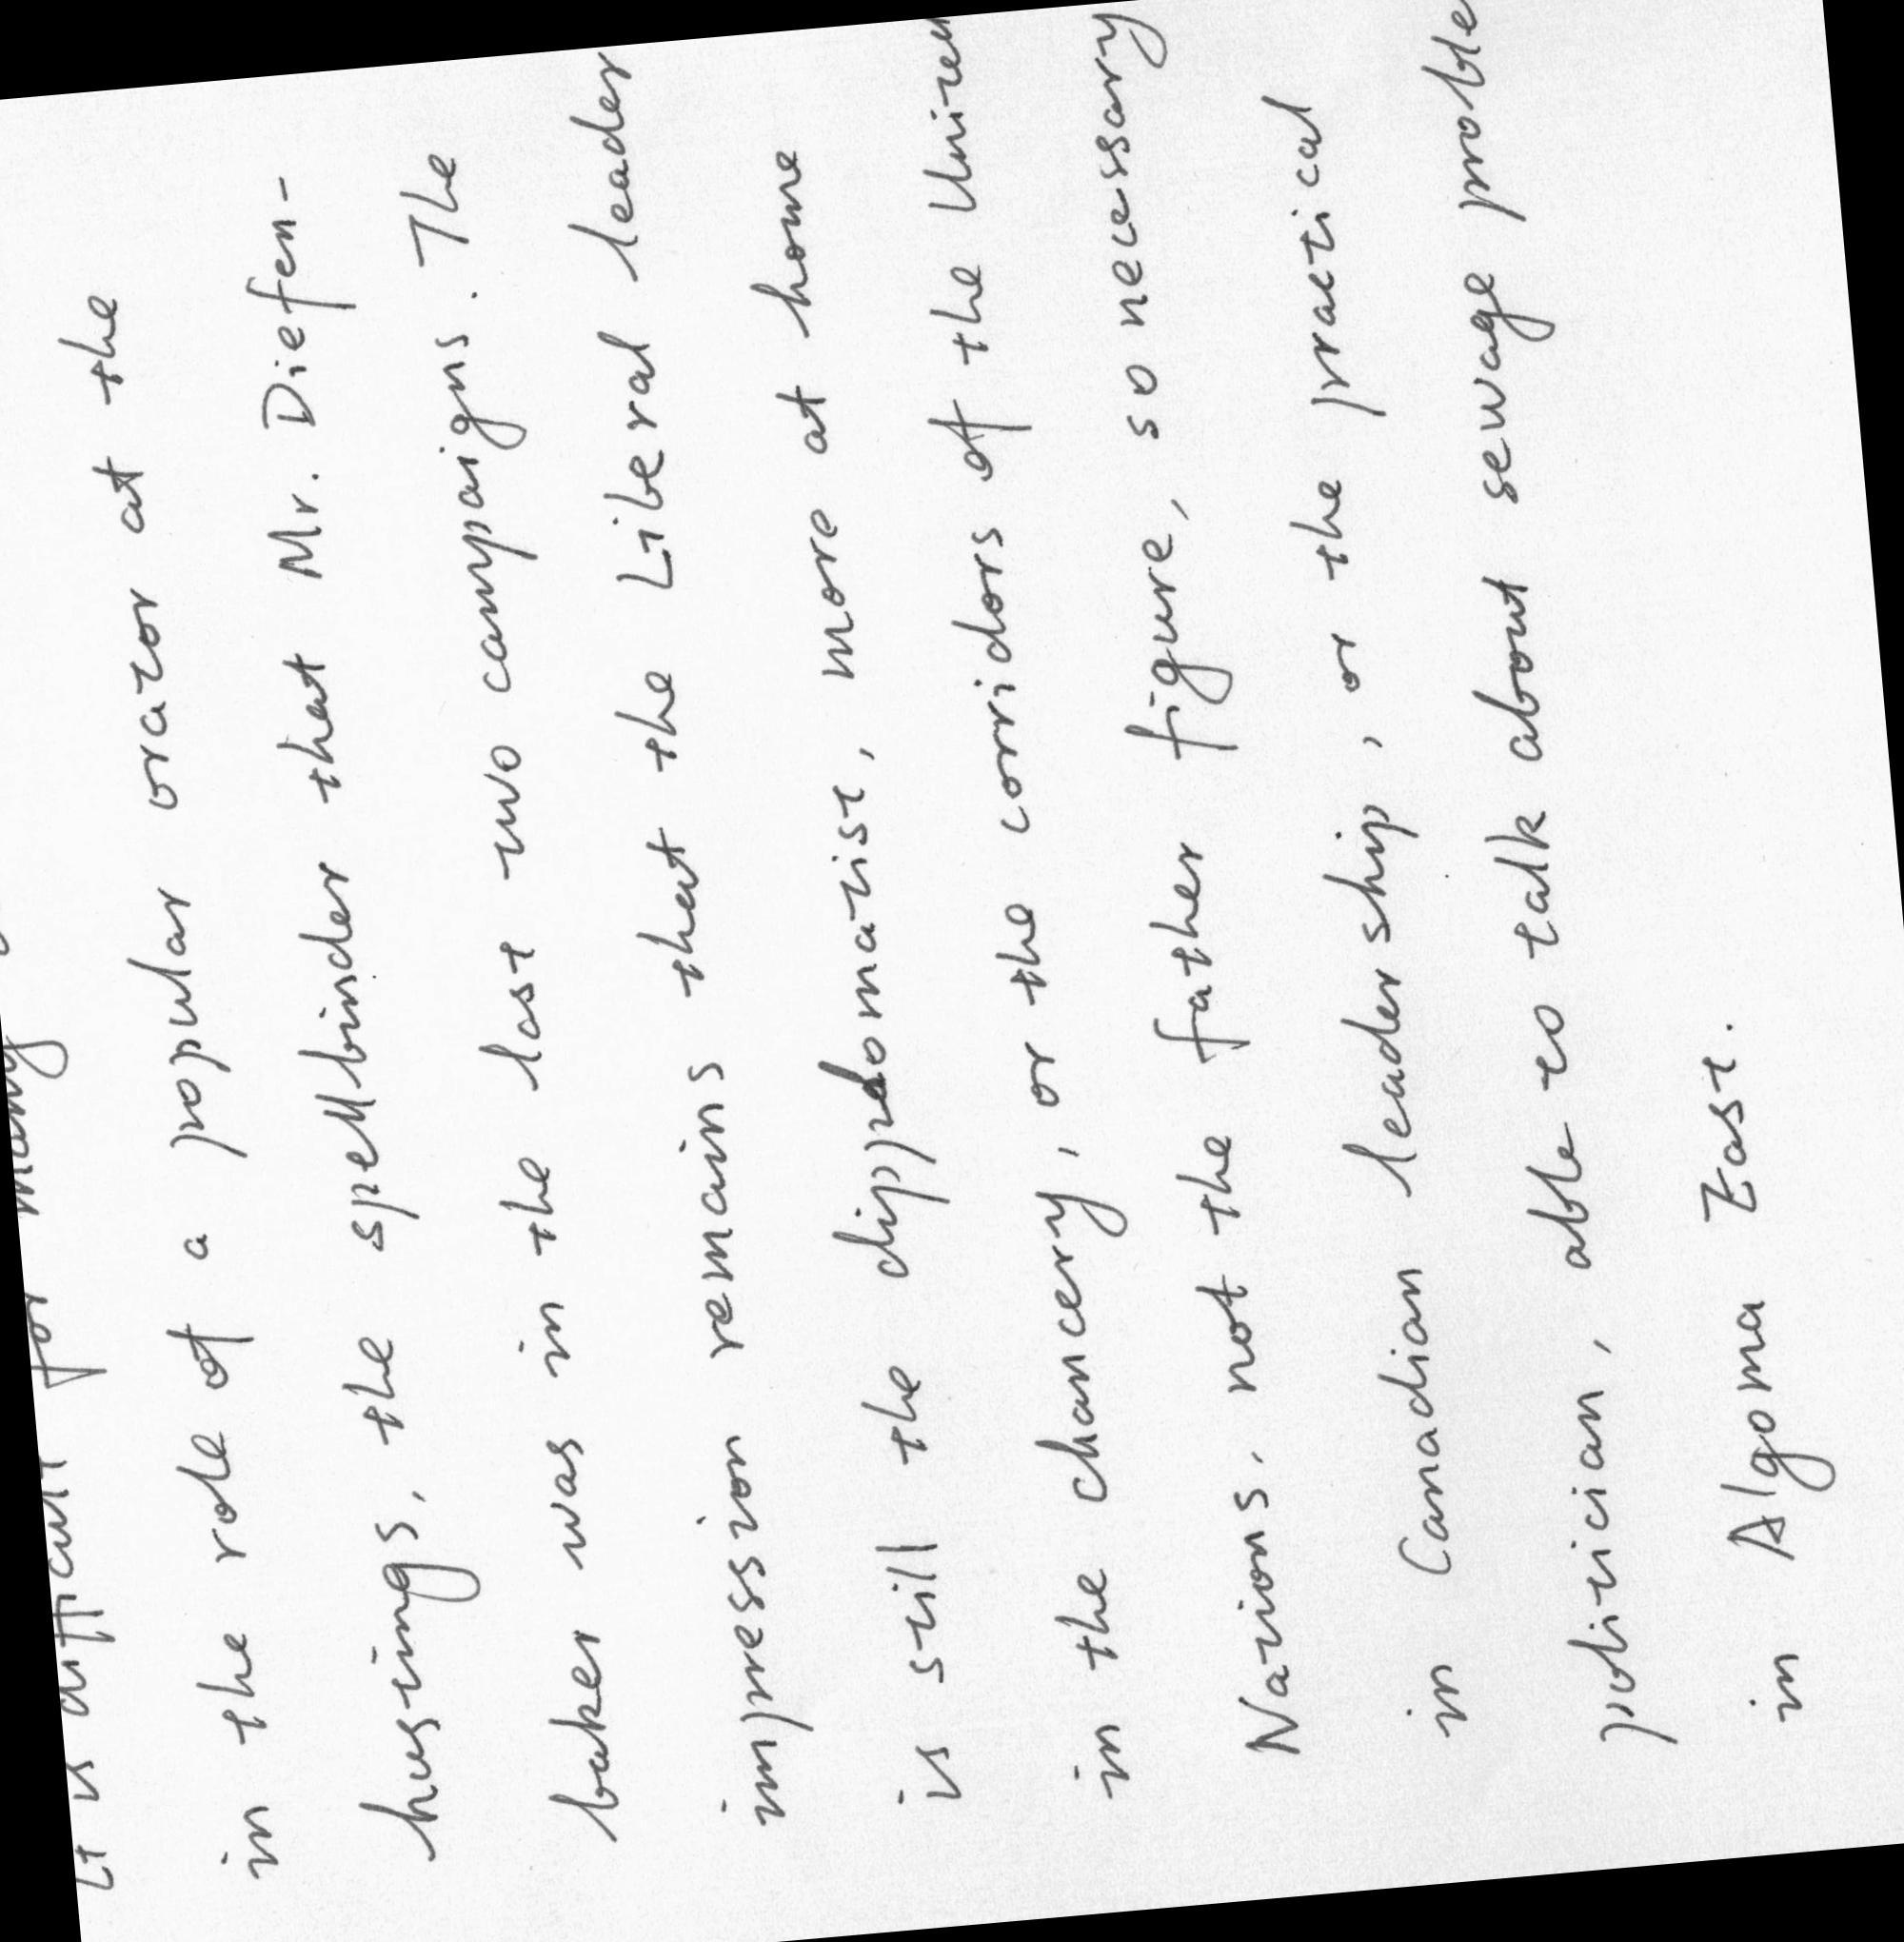 It is difficult for many
in the role of a popular orator at the
hustings, the spellbinder that Mr. Diefen-
baker was in the last two campaigns. The
impression remains that the Liberal leader
is still the diplomatist, more at home
in the chancery, or the corridors of the United
Nations, not the father figure, so necessary
in Canadian leadership, or the practical
politician, able to talk about sewage proble
in Algoma East.